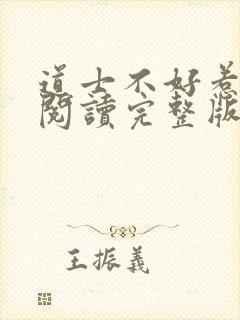 道士不好惹
閱讀完整版
王振義